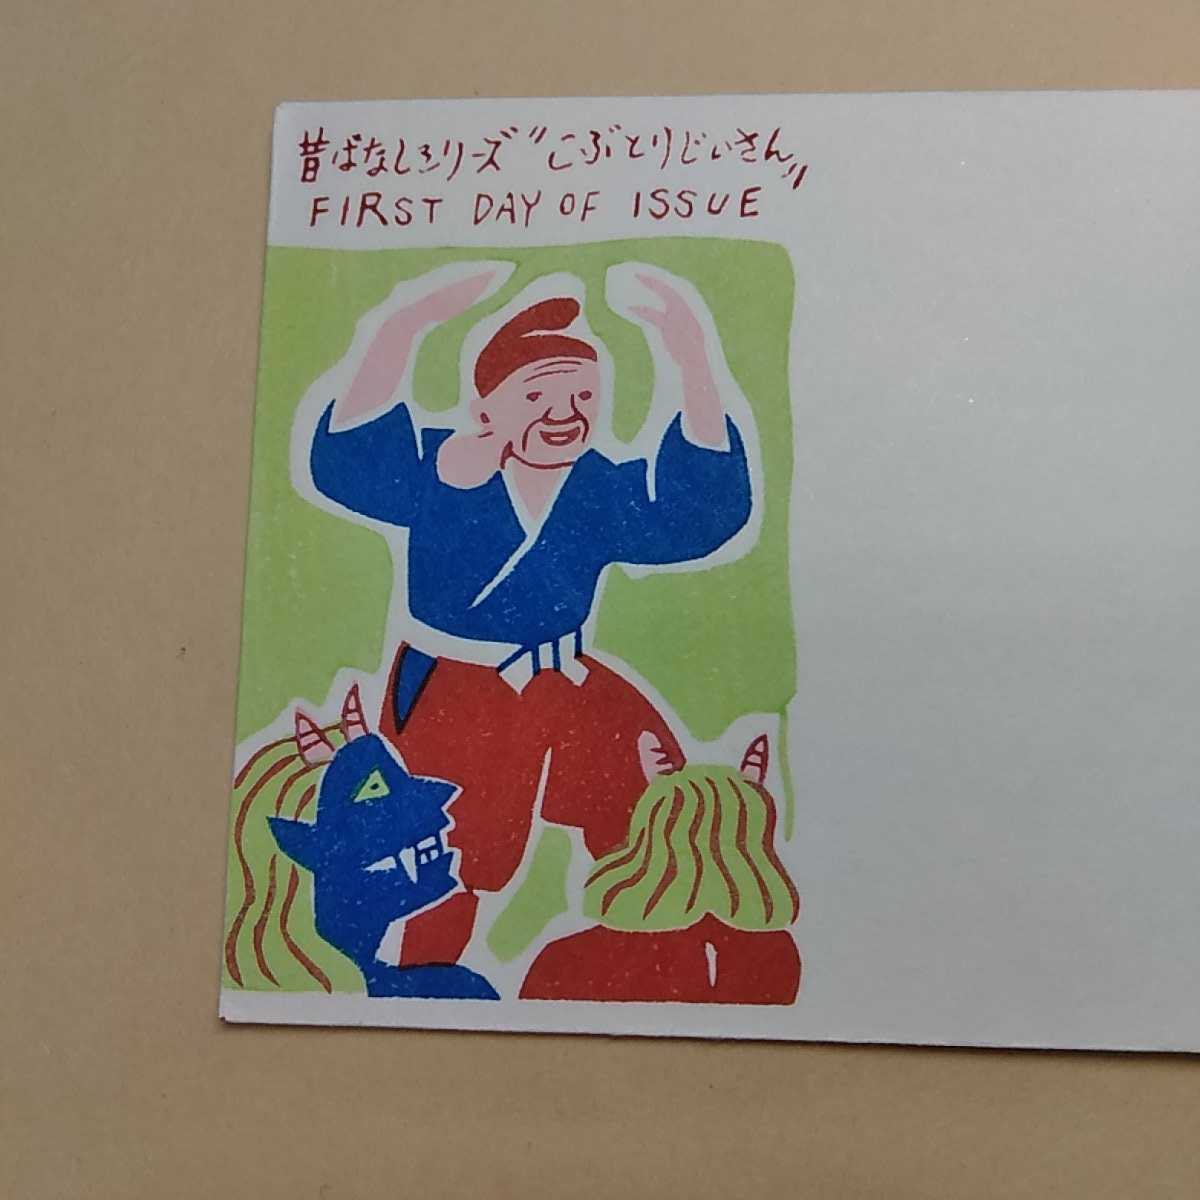 昔ばなしシリーズ"こぶとりじいさん"
FIRST DAY OF ISSUE